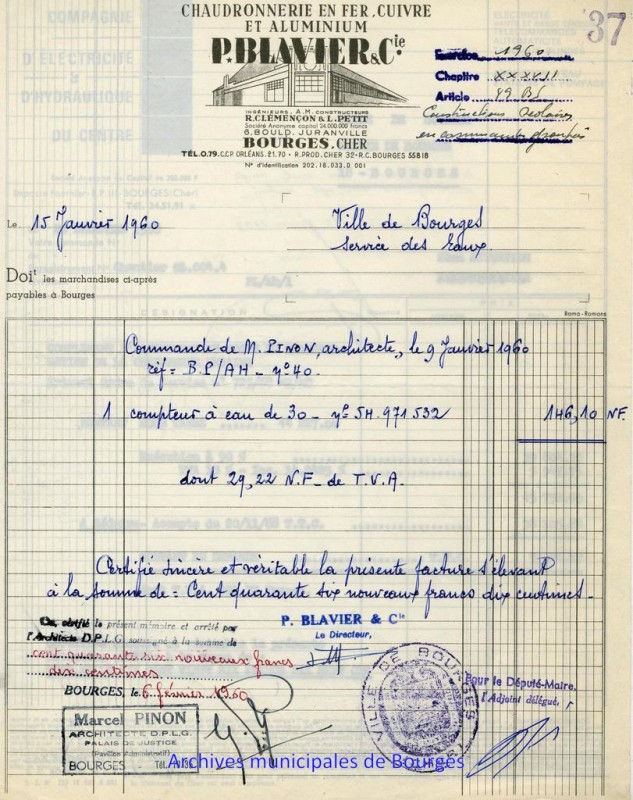 CHAUDRONNERIE EN FER, CUIVRE
ET ALUMINIUM
P. BLAVIER & Cie
INGÉNIEURS A.M. CONSTRUCTEURS
R. CLEMENÇON & L. PETIT
Société Anonyme capital 24.000.000 francs
6, BOULD. JURANVILLE
BOURGES, CHER
TÉL. 0.79. C.C.P. ORLÉANS. 21.70 • R. PROD. CHER 32 • R.C. BOURGES 55 B 18
N° d'Identification 202.18.033.0 001
37
Exercice 1960
Chapitre XXXVII
Article 49 Bs
Constructions scolaires
Le 15 Janvier 1960
Ville de Bourges
Service des Eaux.
Doit les marchandises ci-après
payables à Bourges
Roma-Romans
Commande de M. PINON, architecte, le 9 Janvier 1960
réf = B.P/AH - n° 40.
1 compteur à eau de 30 - n° 5H.971.532 146,10 NF.
dont 29,22 N.F. de T.V.A.
Certifié sincère et véritable la présente facture s'élevant
à la somme de = Cent quarante six nouveaux francs dix centimes -
P. BLAVIER & Cie
Le Directeur,
certifié le présent mémoire et arrêté par
l'Architecte D.P.L.G. soussigné à la somme de
cent quarante six nouveaux francs
dix centimes
BOURGES, le 6 février 1960
VILLE DE BOURGES
Pour le Député-Maire,
l'Adjoint délégué,
Marcel PINON
ARCHITECTE D.P.L.G.
PALAIS DE JUSTICE
(Pavillon Administratif)
BOURGES
Archives municipales de Bourges